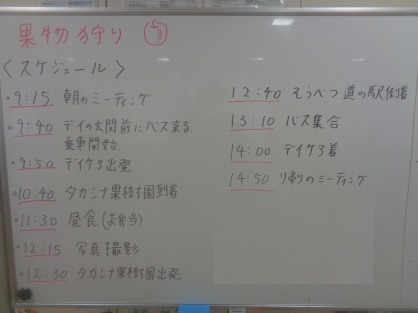 果物狩り
<スケジュール>
・9:15 朝のミーティング
・9:40 デイの玄関前にバス来る.
乗車開始.
・9:50 デイケア出発
・10:40 タカシナ果樹園到着
・11:30 昼食(お弁当)
・12:15 写真撮影
・12:30 タカシナ果樹園出発
12:40 そうべつ道の駅到着
13:10 バス集合
14:00 デイケア着
14:50 帰りのミーティング